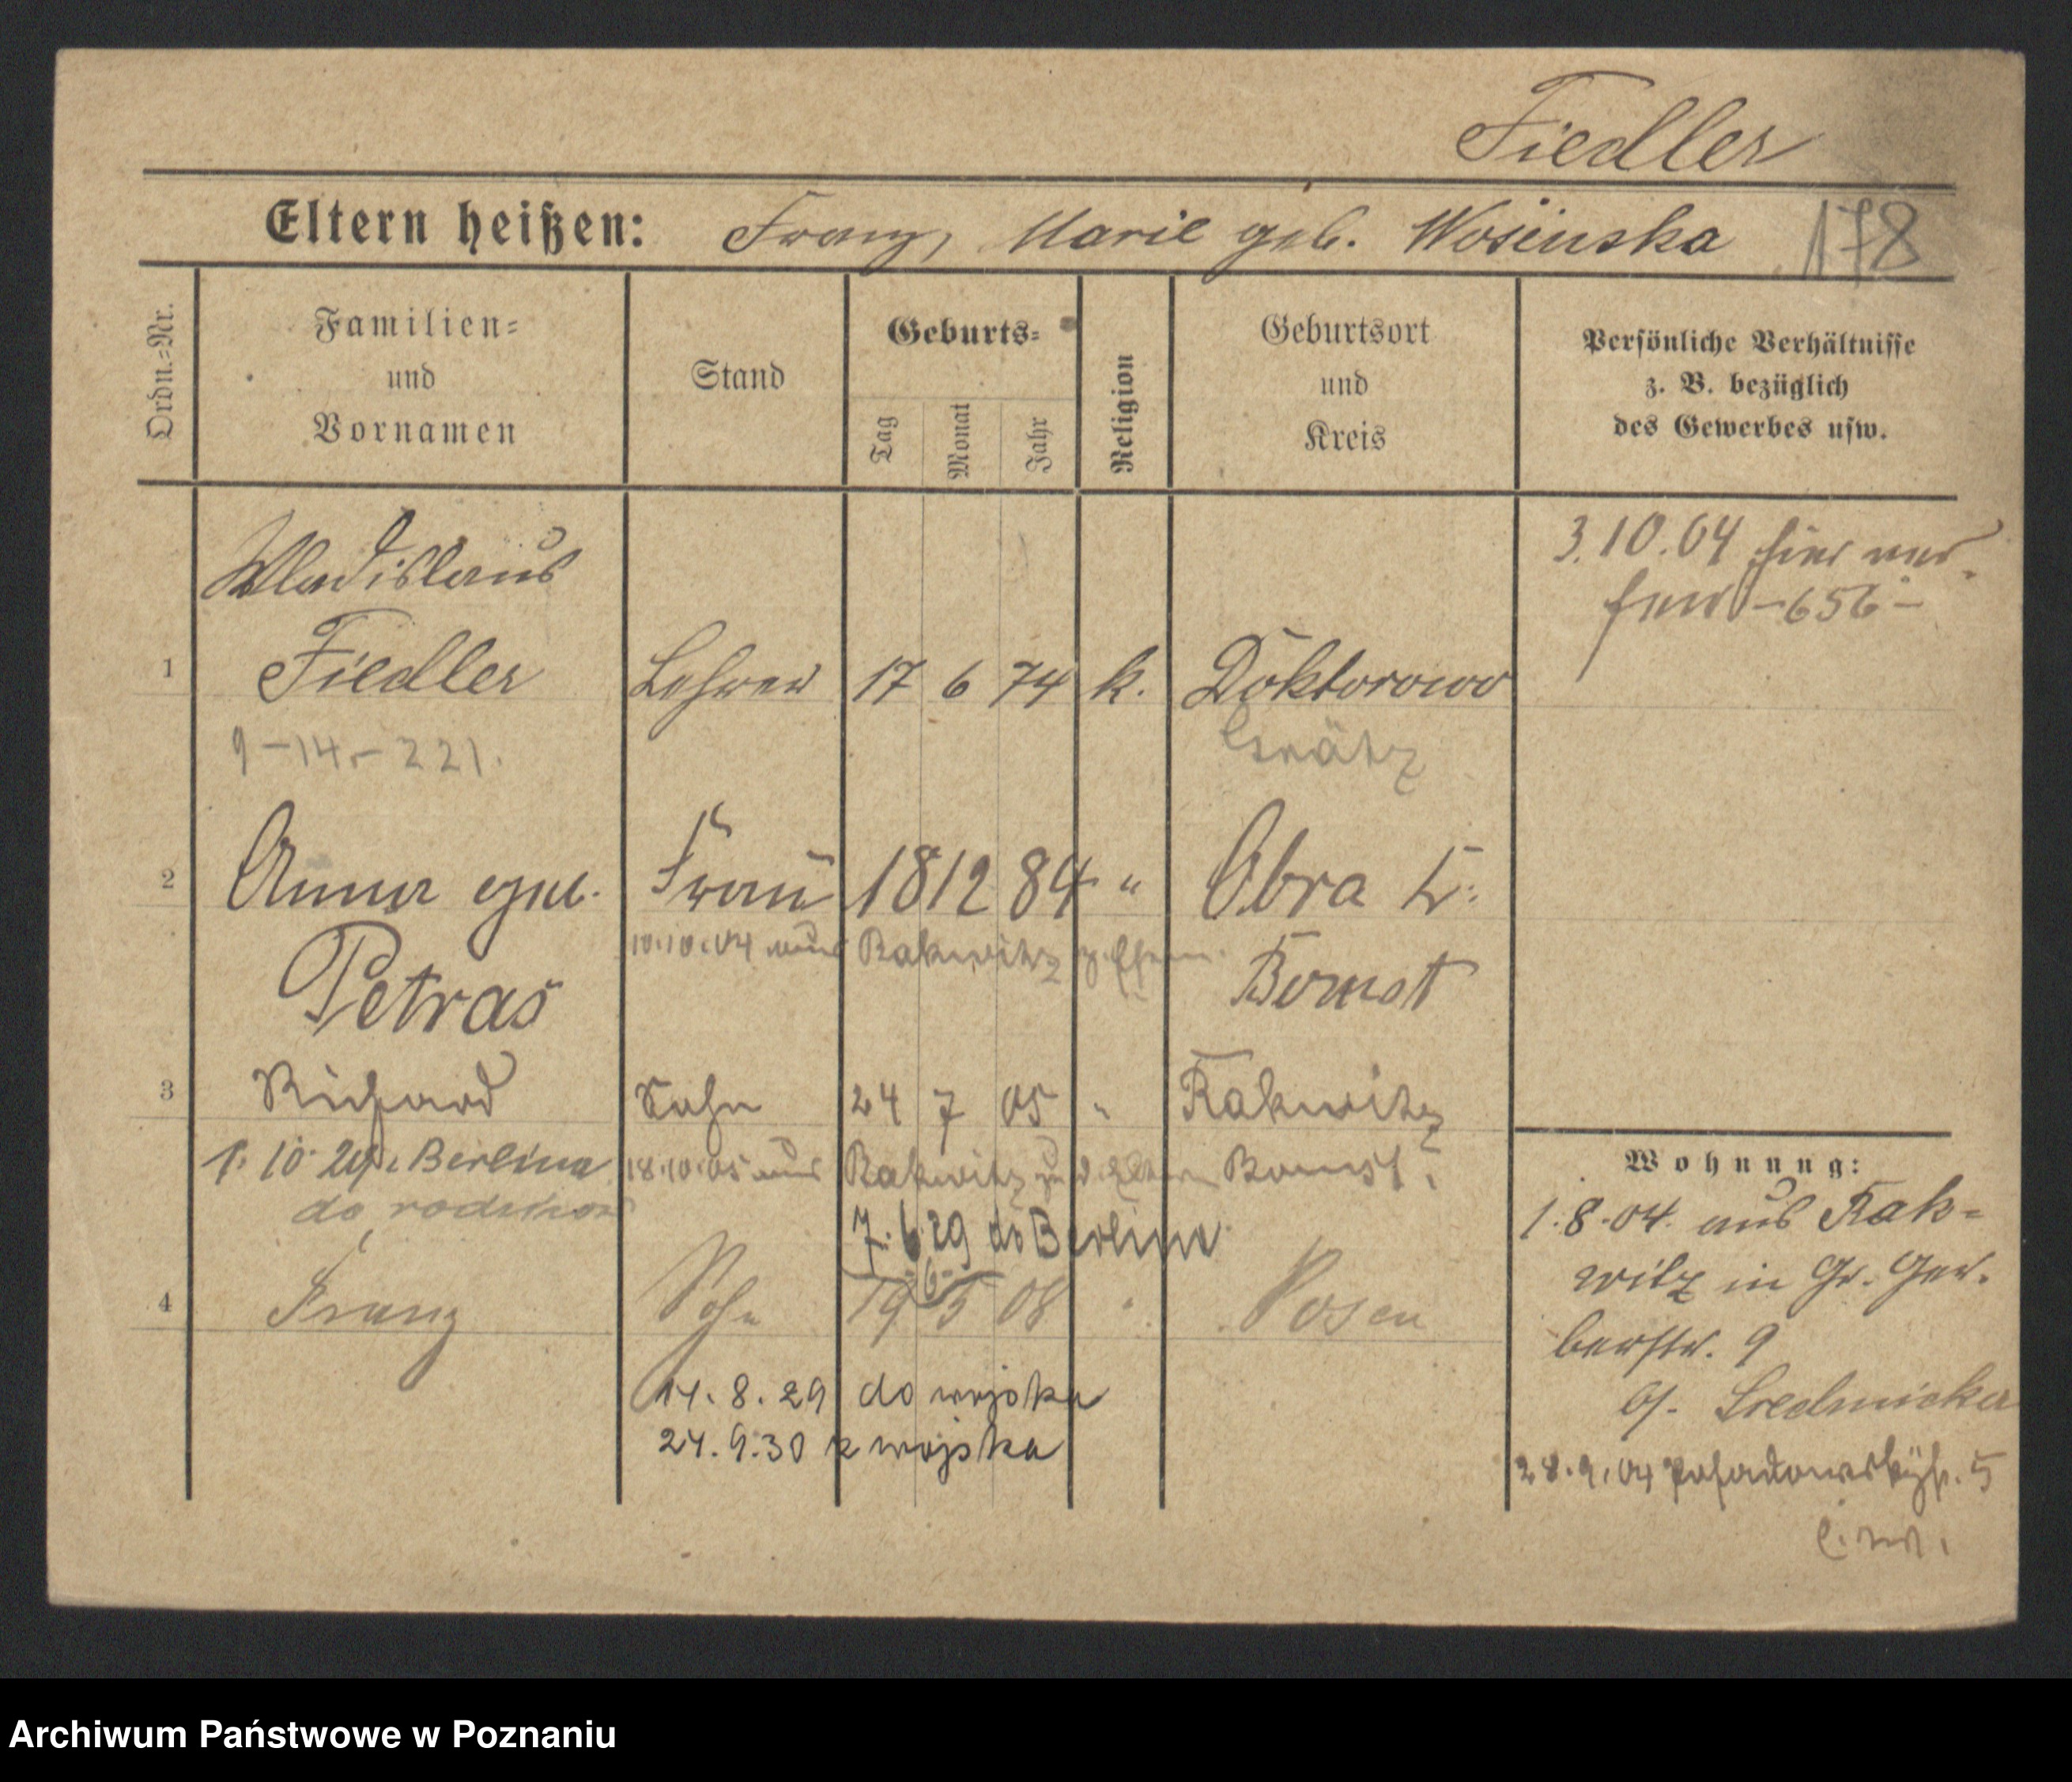 Fiedler
Eltern heißen: Franz, Marie geb. Wosinska 178
Ordn.-Nr.
Familien-
und
Vornamen
Stand
Geburts-
Tag
Monat
Jahr
Religion
Geburtsort
und
Kreis
Persönliche Verhältnisse
z. B. bezüglich
des Gewerbes usw.
3.10.04 hier ver-
heir. -656-
Wladislaus
1 Fiedler Lehrer 17 6 74 k. Doktorowo
9-14-221. Grätz
2 Anna geb. Frau 18 12 84 " Obra Kr.
10.10.04 aus Rakwitz z. Ehem.
Petras Bomst
3 Richard Sohn 24 7 05 " Rakwitz
1.10.29 z Berlina 18.10.05 aus Rakwitz zu d. Eltern Bomst
do rodziców
7.6.29 do Berlina
4 Franz Sohn 19 5 08 " Posen
6
14.8.29 do wojska
24.9.30 z wojska
Wohnung:
1.8.04. aus Rak-
witz in Gr. Ger-
berstr. 9
b/. Srednicka
28.9.04 Posadowskystr. 5